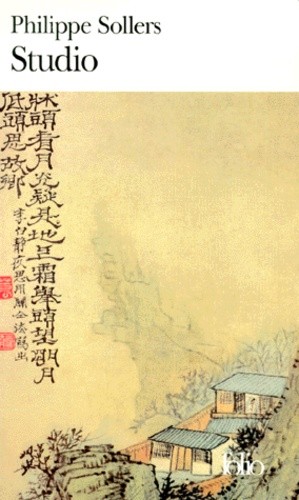 Philippe Sollers
Studio
牀頭看月光疑是地上霜舉頭望明月
低頭思故鄉
李白靜夜思用
folio